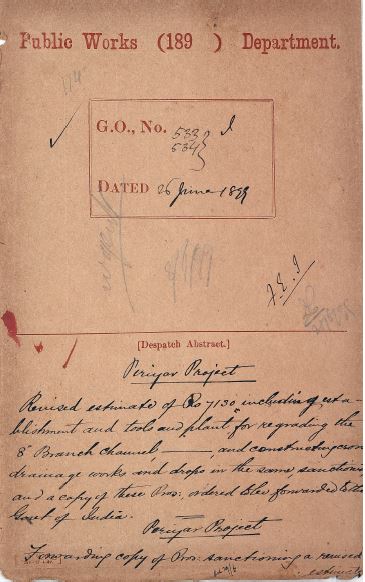 Public Works (189 ) Department.
114
G.O., No. 533 } I
534
DATED 26 June 1899
J.E.I
[Despatch Abstract.]
Periyar Project
Revised estimate of Rs 7130 including esta-
blishment and tools and plant for regrading the
8th Branch channel ——— and constructing cross
drainage works and drops in the same sanctions
and a copy of these Pros: ordered to be forwarded to the
Govt of India.
Periyar Project
Forwarding copy of Pros: sanctioning a revised
estimate